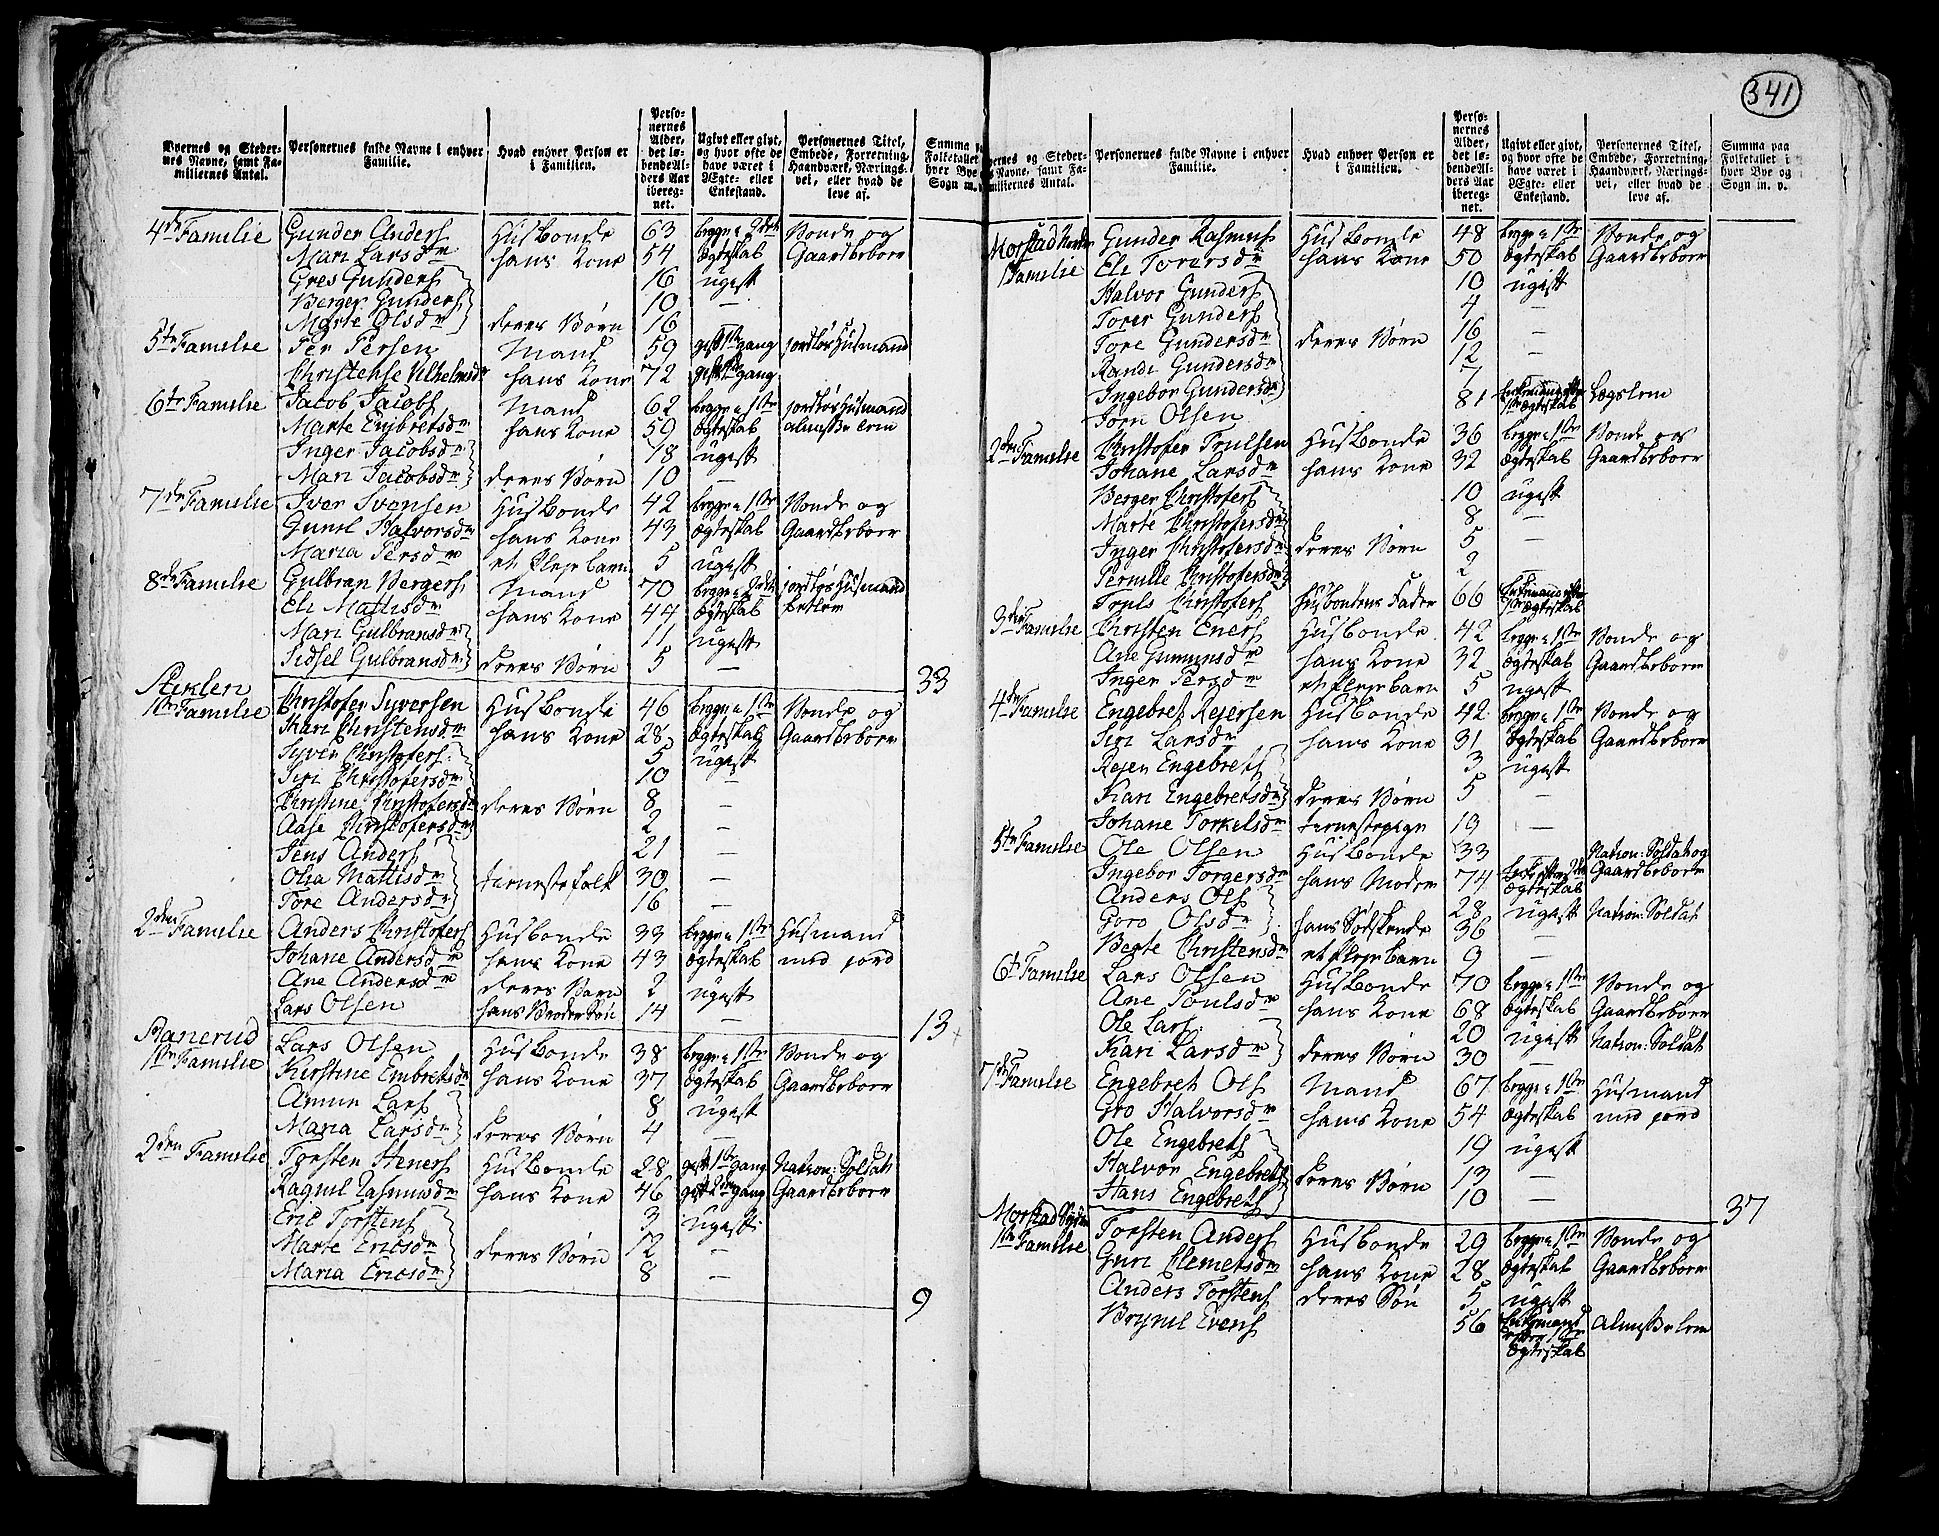 341
Byernes og Steder-
nes Navne, samt Fa-
miliernes Antal.
Personernes fulde Navne i enhver
Familie.
Hvad enhver Person er
i Familien.
Perso-
nernes
Alder,
det lø-
bende Al-
ders Aar
iberegnet.
Ugivt eller givt,
og hvor ofte de
have været i
Ægte- eller
Enkestand.
Personernes Titel,
Embede, Forretning,
Haandværk, Nærings-
vei, eller hvad de
leve af.
Summa paa
Folketallet i
hver Bye og
Sogn m. v.
4de Familie Gunder Anders Husbonde 63 begge i 2det Bonde og
Mari Larsdr hans Kone 54 Ægteskab Gaardbeboer
Gunders 16 ugift
Berger Gunders 10 —
Marte Olsdr deres Børn 16
5te Familie Per Persen Mand 59 gift 1ste gang jordløs Husmand
Christense Vilhelmsdr hans Kone 72 gift gang
6te Familie Jacob Jacobs Mand 62 begge i 1ste jordløs Husmand
Marte Engbretsdr hans Kone 59 Ægteskab almisse lem
Inger Jacobsdr 18 ugift
Mari Jacobsdr deres Børn 10 —
7de Familie Iver Ivensen Husbonde 42 begge i 1ste Bonde og
Gunil Halvorsdr hans Kone 43 Ægteskab Gaardbeboer
Maria Persdr et Plejebarn 5 ugift
8de Familie Gulbran Bergers Mand 70 begge i 2det jordløs Husmand
Eli Mattisdr hans Kone 44 Ægteskab betler
Mari Gulbransdr 11 ugift
Sidsel Gulbransdr deres Børn 5 —
33
Stixlen
1ste Familie Christofer Syversen Husbonde 46 begge i 1ste Bonde og
Kari Christensdr hans Kone 28 Ægteskab Gaardbeboer
Syver Christofers 5 ugift
Siri Christofersdr 10 —
Christine Christofersdr deres Børn 8 —
Aase Christofersdr 2 —
Jens Anders 21 —
Olia Mattisdr tienestefolk 30 —
Tore Andersdr 16 —
2den Familie Anders Christofers Husbonde 33 begge i 1ste Husmand
Johane Andersdr hans Kone 43 Ægteskab med jord
Ane Andersdr deres Barn 2 ugift
Lars Olsen hans Broder Søn 14 —
13
Ranerud
1ste Familie Lars Olsen Husbonde 38 begge i 1ste Bonde og
Kirstine Embretsdr hans Kone 37 Ægteskab Gaardbeboer
Amun Lars 8 ugift
Maria Larsdr deres Børn 4 —
2den Familie Torsten Steners Husbonde 28 gift 1ste gang Nation: Soldat
Ragnil Rasmusdr hans Kone 46 gift 2den gang Gaardbeboer
Eric Torstens 3 ugift
Marte Ericsdr deres Børn 12 —
Maria Ericsdr 8 —
9
Byernes og Steder-
nes Navne, samt Fa-
miliernes Antal.
Personernes fulde Navne i enhver
Familie.
Hvad enhver Person er
i Familien.
Perso-
nernes
Alder,
det lø-
bende Al-
ders Aar
iberegnet.
Ugivt eller givt,
og hvor ofte de
have været i
Ægte- eller
Enkestand.
Personernes Titel,
Embede, Forretning,
Haandværk, Nærings-
vei, eller hvad de
leve af.
Summa paa
Folketallet i
hver Bye og
Sogn m. v.
Morstad Gunder Rasmus Husbonde 48 begge i 1ste Bonde og
1 Familie Eli Torersdr hans Kone 50 Ægteskab Gaardbeboer
Halvor Gunders 10 ugift
Torer Gunders 4 —
Tore Gundersdr deres Børn 16 —
Randi Gundersdr 12 —
Ingebor Gundersdr 7 —
Jorn Olsen 81 1ste Ægteskab Lægslem
2den Familie Christofer Trulsen Husbonde 36 begge i 1ste Bonde og
Johane Larsdr hans Kone 32 Ægteskab Gaardbeboer
Berger Christofers 10 ugift
Marte Christofersdr 8 —
Inger Christofersdr deres Børn 5 —
Pernille Christofersdr 2 —
Truls Christofers Husbondens Fader 66 1ste Ægteskab
3die Familie Christen Eners Husbonde 42 begge i 1ste Bonde og
Ane Gumunsdr hans Kone 32 Ægteskab Gaardbeboer
Inger Persdr et Plejebarn 5 ugift
4de Familie Engebret Rejersen Husbonde 42 begge i 1ste Bonde og
Siri Larsdr hans Kone 31 Ægteskab Gaardbeboer
Rejer Engebrets 3 ugift
Kari Engebretsdr deres Børn 5 —
Johane Torkelsdr tienestepige 19 —
5te Familie Ole Olsen Husbonde 33 — Nation: Soldat og
Ingebor Torgersdr hans Moder 74 Ægteskab Gaardbeboer
Anders Ols 28 ugift Nation: Soldat
Goro Olsdr hans Sødskende 36 —
Begte Christensdr et Plejebarn 9 —
6te Familie Lars Olsen Husbonde 70 begge i 1ste Bonde og
Ane Poulsdr hans Kone 68 Ægteskab Gaardbeboer
Ole Lars 20 ugift Nation: Soldat
Kari Larsdr deres Børn 30 —
7de Familie Engebret Ols Mand 67 begge i 1ste Husmand
Gro Halvorsdr hans Kone 54 Ægteskab med jord
Ole Engebrets 19 ugift
Halvor Engebrets deres Børn 13 —
Hans Engebrets 10 —
37
Morstad
1ste Familie Torsten Anders Husbonde 29 begge i 1ste Bonde og
Guri Clemetsdr hans Kone 28 Ægteskab Gaardbeboer
Anders Torstens deres Søn 5 ugift
Brynil Evens 56 Enkemand efter 1ste Ægteskab almisse lem